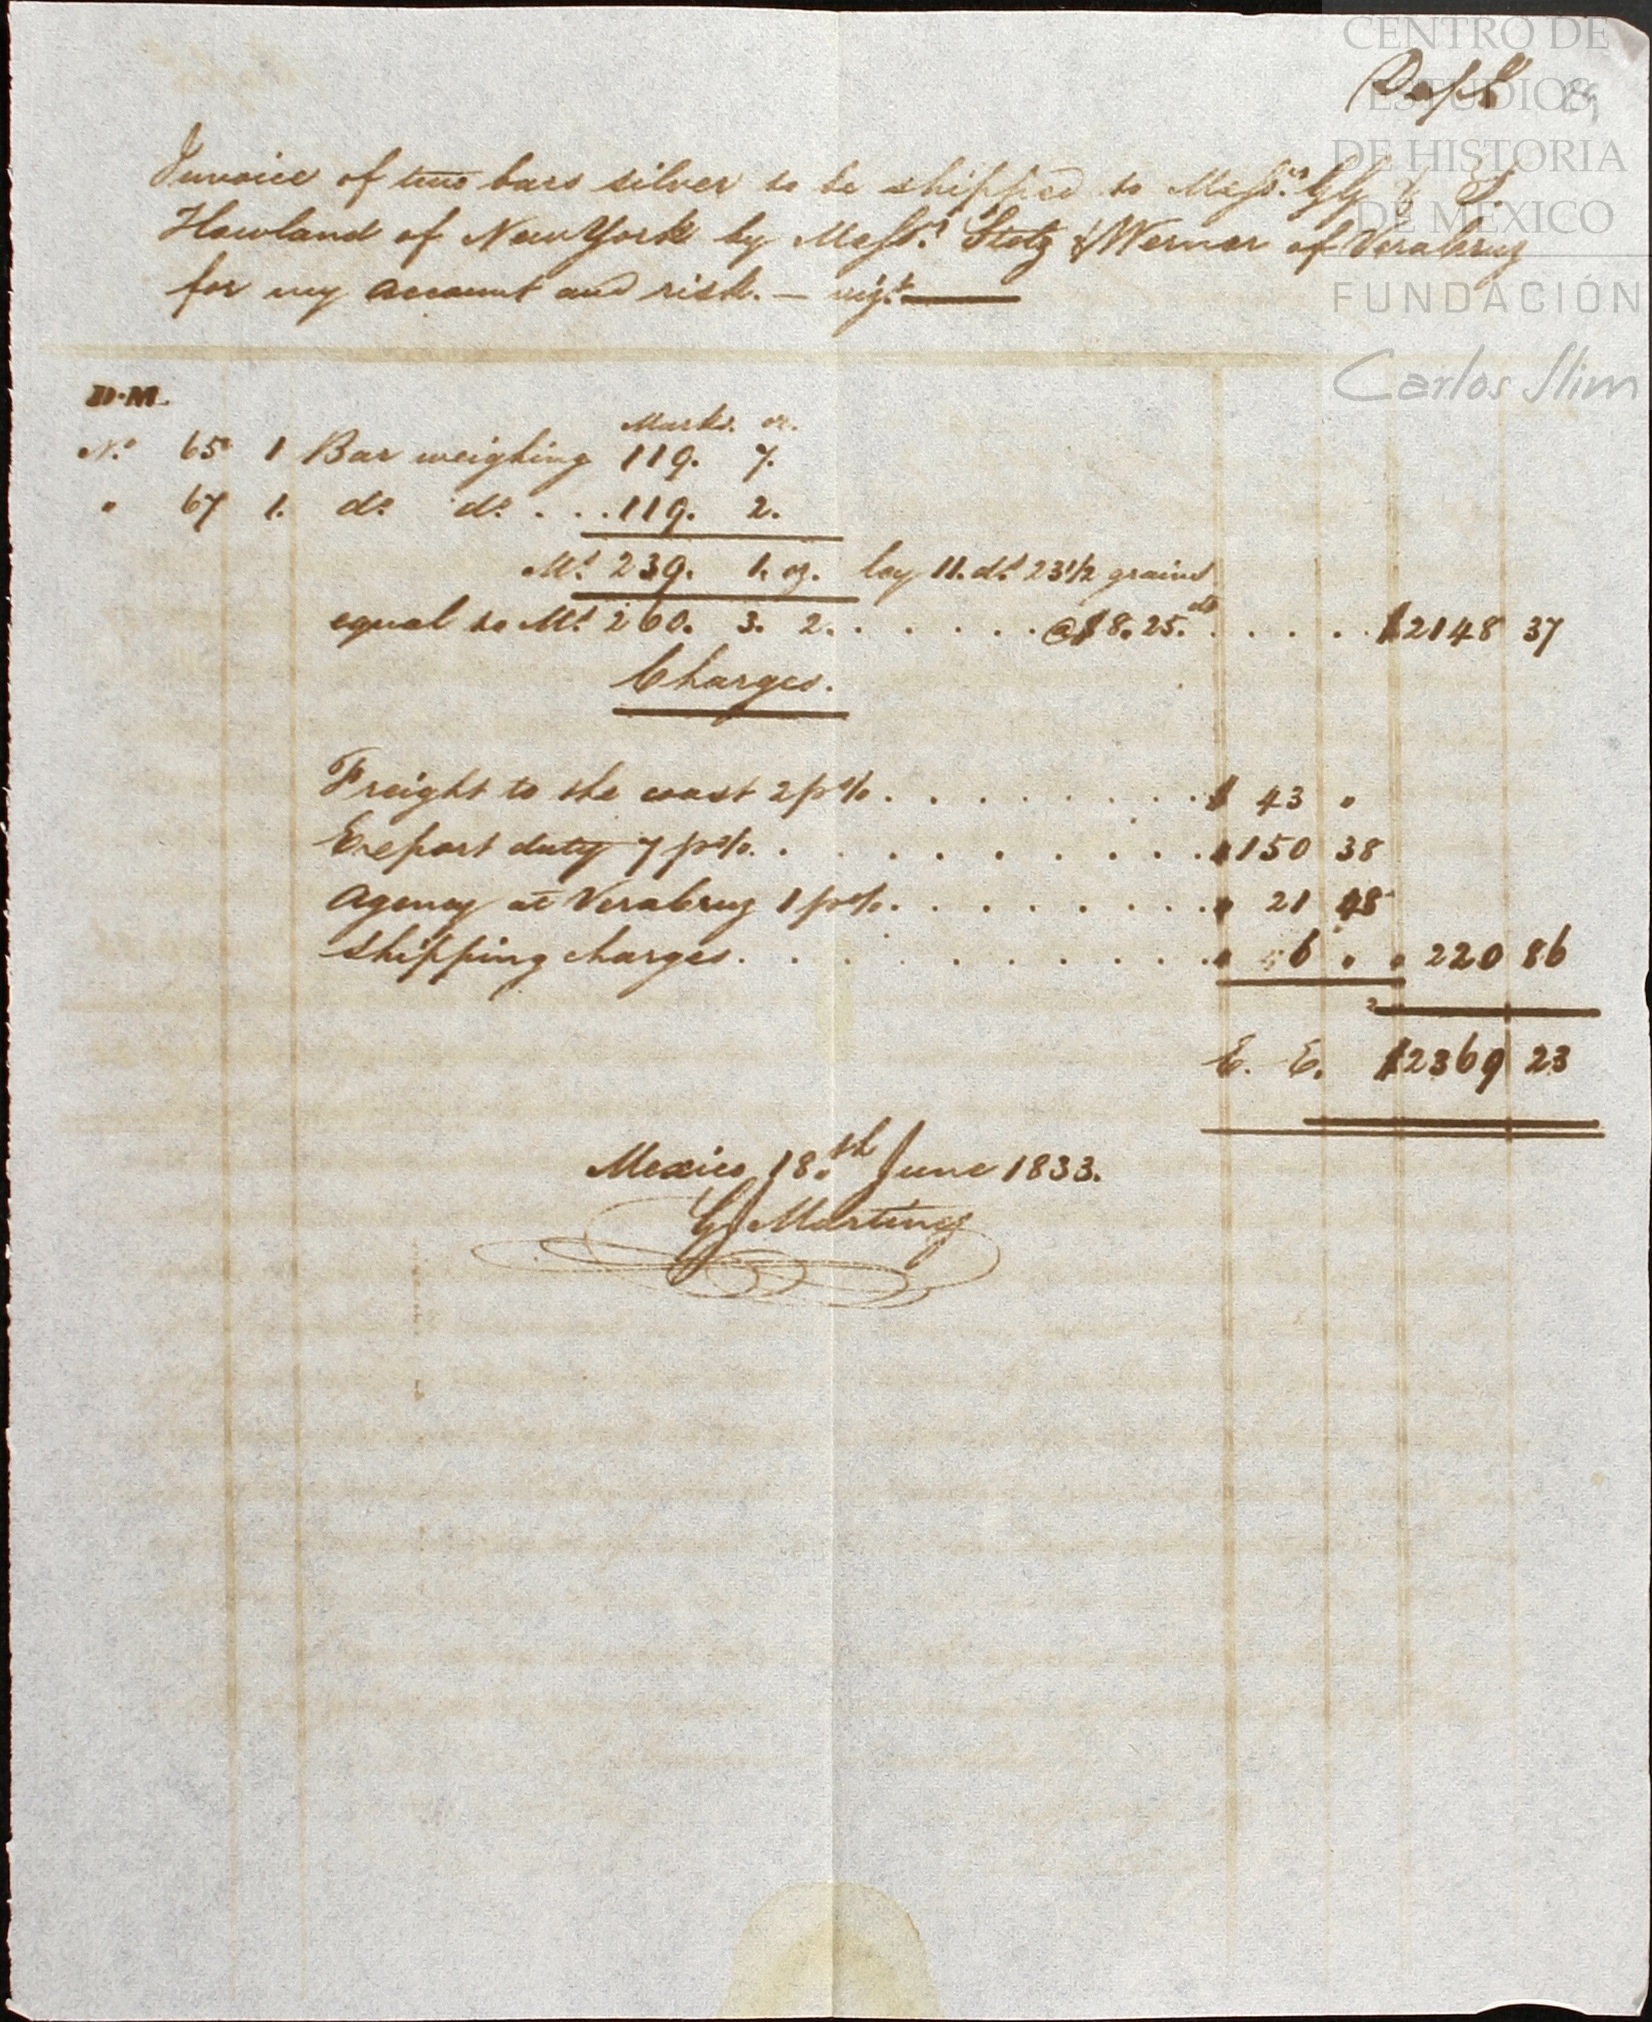 CENTRO DE
ESTUDIOS
DE HISTORIA
DE MEXICO
FUNDACIÓN
Carlos Slim
89
Invoice of two bars silver to be shipped to Messrs. G G & S.
Howland of New York by Messrs. Stolz & Werner of Verabruz
for my account and risk. — vigt.
D.M.
Marks. oz.
No. 65 1 Bar weighing 119. 7.
" 67 1. do. do. . . . 119. 2.
Ms. 239. 1. oz. ley 11. ds. 23 1/2 grains
equal to Ms. 260. 3. 2. . . . . . @ $8. 25. cts . . . . $2148 37
Charges.
Freight to the coast 2 p% . . . . . . . . $ 43 "
Export duty 7 p%. . . . . . . . . . " 150 38
Agency at Verabruz 1 p%. . . . . . . . " 21 48
Shipping charges. . . . . . . . . . " 6 " " 220 86
E. E. $2369 23
Mexico 18.th June 1833.
G Martinez